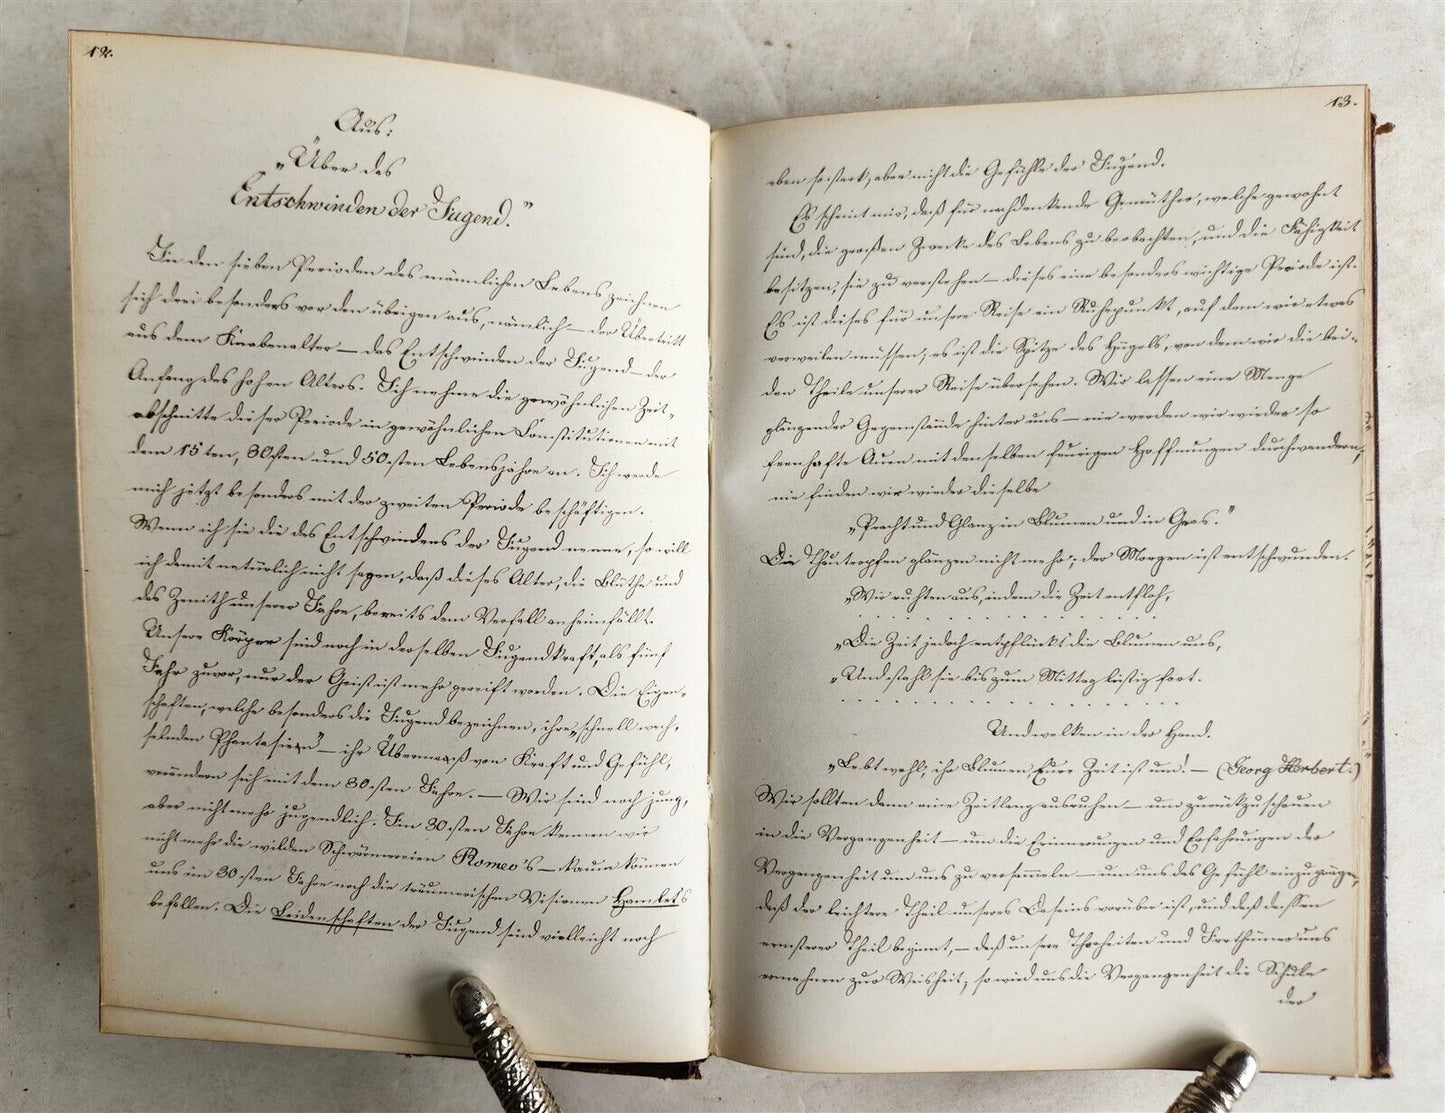 12.
Aus:
„Über das
Entschwinden der Jugend.”
In den sieben Perioden des männlichen Lebens zeichnen
sich drei besonders vor den übrigen aus, nämlich — der Übertritt
aus dem Knabenalter — das Entschwinden der Jugend — der
Anfang des hohen Alters. Ich nehme die gewöhnlichen Zeit-
abschnitte dieser Periode in gewöhnlichen Constitutionen mit
dem 15ten, 30sten und 50sten Lebensjahre an. Ich werde
mich jetzt besonders mit der zweiten Periode beschäftigen.
Wenn ich sie die des Entschwindens der Jugend nenne, so will
ich damit natürlich nicht sagen, daß dieses Alter, die Blüthe und
das Zenith unserer Jahre, bereits dem Verfall anheimfällt.
Unsere Körper sind noch in derselben Jugendkraft, als fünf
Jahr zuvor, nur der Geist ist mehr gereift worden. Die Eigen-
schaften, welche besonders die Jugend bezeichnen, ihre „schnell wech-
selnden Phantasieen” — ihr Übermaß von Kraft und Gefühl,
verändern sich mit dem 30sten Jahre. — Wir sind noch jung,
aber nicht mehr jugendlich. Im 30sten Jahre kennen wir
nicht mehr die wilden Schwärmereien Romeo's — kaum können
uns im 30sten Jahre noch die träumerischen Visionen Hamlets
befallen. Die Leidenschaften der Jugend sind vielleicht noch
13.
eben so stark, aber nicht die Gefühle der Jugend.
Es scheint mir, daß für nachdenkende Gemüther, welche gewohnt
sind, die großen Zwecke des Lebens zu beobachten, und die Fähigkeit
besitzen, sie zu verstehen — dieses eine besonders wichtige Periode ist.
Es ist dieses für unsere Reise ein Ruhepunkt, auf dem wir etwas
verweilen müssen, es ist die Spitze des Hügels, von dem wir die bei-
den Theile unserer Reise übersehen. Wir lassen eine Menge
glänzender Gegenstände hinter uns — nie werden wir wieder so
fernhafte Auen mit denselben feurigen Hoffnungen durchwandern,
nie finden wir wieder dieselbe
„Pracht und Glanz in Blumen und in Gras.”
Die Thautropfen glänzen nicht mehr; der Morgen ist entschwunden.
„Wir ruhten aus, indem die Zeit entfloh,
. . . . . . . . . . . . . . . .
„Die Zeit jedoch entpflückt die Blumen uns,
„Und stahl sie bis zum Mittag listig fort.
. . . . . . . . . . . . . . . .
Und welken in der Hand.
„Lebt wohl, ihr Blumen, Eure Zeit ist um! — (Georg Herbert.)
Wir sollten dann eine Zeitlang ausruhen — um zurückzuschauen
in die Vergangenheit — um die Erinnerungen und Erfahrungen der
Vergangenheit um uns zu versammeln — um uns das Gefühl einzuprägen,
daß der leichtere Theil unseres Daseins vorüber ist, und daß dessen
ernsterer Theil beginnt, — daß unsere Thorheiten und Irrthümer uns
ermahnen zur Weisheit, so wird uns die Vergangenheit die Schule
der